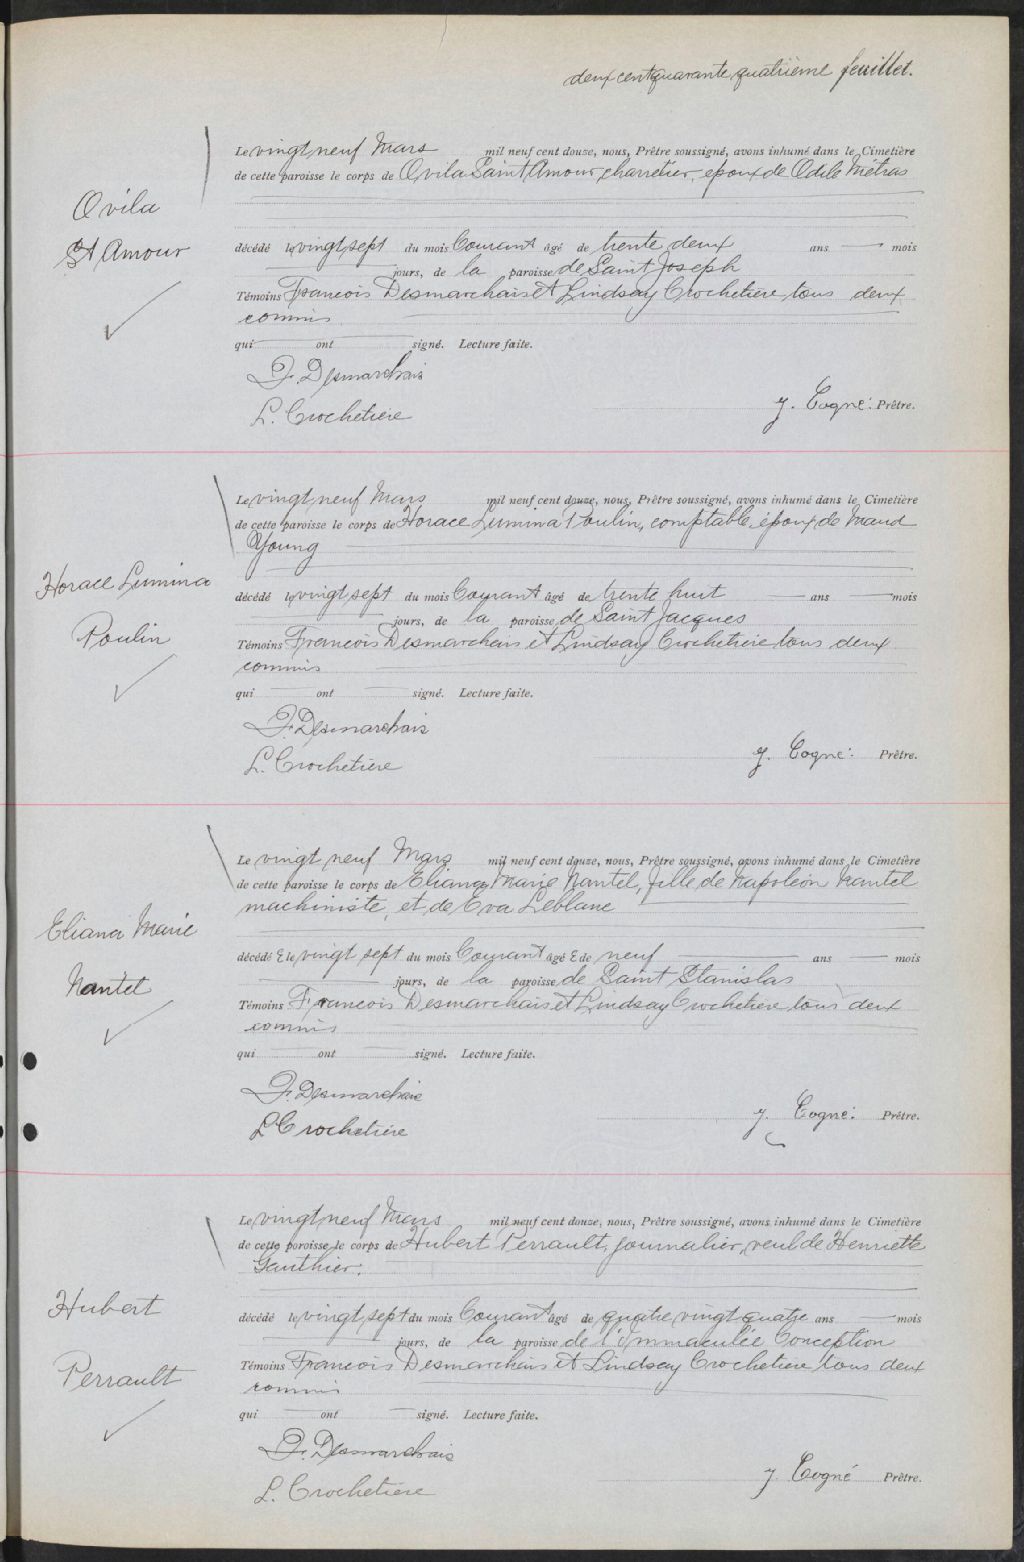 deux cent quarante quatrième feuillet.
Ovila
St Amour
Le vingt neuf Mars mil neuf cent douze, nous, Prêtre soussigné, avons inhumé dans le Cimetière
de cette paroisse le corps de Ovila Saint Amour, charretier, époux de Odile Métras
décédé le vingt sept du mois Courant âgé de trente deux ans mois
jours, de la paroisse de Saint Joseph
Témoins Francois Desmarchais et Lindsay Crochetière tous deux
commis
qui ont signé. Lecture faite.
F. Desmarchais
L. Crochetière
J. Cogné. Prêtre.
Horace Lumina
Poulin
Le vingt neuf Mars mil neuf cent douze, nous, Prêtre soussigné, avons inhumé dans le Cimetière
de cette paroisse le corps de Horace Lumina Poulin, comptable, époux de Maud
Young
décédé le vingt sept du mois Courant âgé de trente huit ans mois
jours, de la paroisse de Saint Jacques
Témoins Francois Desmarchais et Lindsay Crochetière tous deux
commis
qui ont signé. Lecture faite.
F. Desmarchais
L. Crochetière
J. Cogné. Prêtre.
Eliana Marie
Nantel
Le vingt neuf Mars mil neuf cent douze, nous, Prêtre soussigné, avons inhumé dans le Cimetière
de cette paroisse le corps de Eliana Marie Nantel, fille de Napoléon Nantel
machiniste, et de Eva Leblanc
décédé E le vingt sept du mois Courant âgé E de neuf ans mois
jours, de la paroisse de Saint Stanislas
Témoins Francois Desmarchais et Lindsay Crochetière tous deux
commis
qui ont signé. Lecture faite.
F. Desmarchais
L Crochetière
J. Cogné. Prêtre.
Hubert
Perrault
Le vingt neuf Mars mil neuf cent douze, nous, Prêtre soussigné, avons inhumé dans le Cimetière
de cette paroisse le corps de Hubert Perrault, journalier, veuf de Henriette
Gauthier.
décédé le vingt sept du mois Courant âgé de quatre vingt quatre ans mois
jours, de la paroisse de l'Immaculée Conception
Témoins Francois Desmarchais et Lindsay Crochetière tous deux
commis
qui ont signé. Lecture faite.
F. Desmarchais
L. Crochetière
J. Cogné Prêtre.